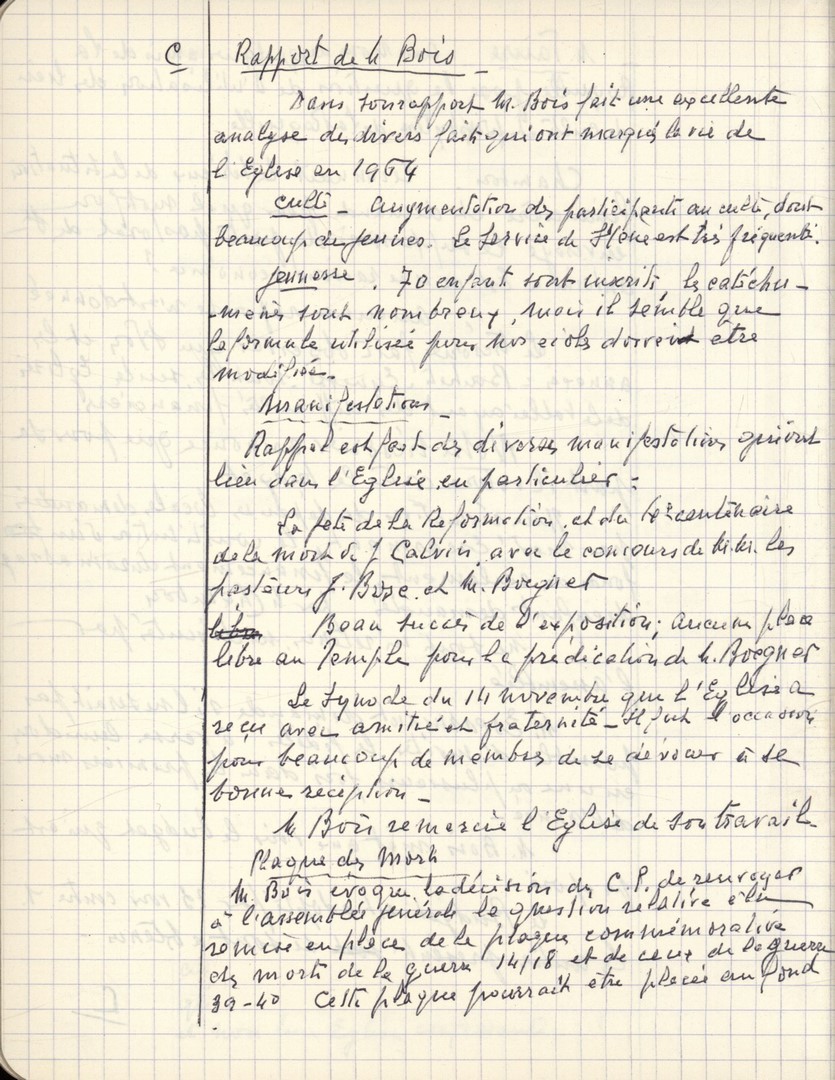 C Rapport de M Bois
Dans son rapport M. Bois fait une excellente
analyse des divers faits qui ont marqué la vie de
l'Eglise en 1964
culte - augmentation des participants au culte, dont
beaucoup de jeunes. Le service de est très fréquenté.
Jeunesse. 70 enfants sont inscrits, les catéchu-
-mènes sont nombreux, mais il semble que
la formule utilisée pour nos écoles doivent être
modifiée.
Manifestations
Rappel est fait des diverses manifestations qui ont
lieu dans l'Eglise en particulier :
La fête de la Réformation et du centenaire
de la mort de J Calvin, avec le concours de M.M. les
pasteurs J. Bosc et M. Boegner
libre Beau succès de l'exposition ; aucune place
libre au Temple pour la prédication de M. Boegner
Le Synode du 14 novembre que l'Eglise a
reçu avec amitié et fraternité - Il fut l'occasion
pour beaucoup de membres de se dévouer à sa
bonne réception -
M Bois remercie l'Eglise de son travail
Plaque des Morts
M. Bois évoque la décision du C.P. de renvoyer
à l'assemblée générale la question relative à la
remise en place de la plaque commémorative
des morts de la guerre 14/18 et de ceux de la guerre
39-40 Cette plaque pourrait être placée au fond